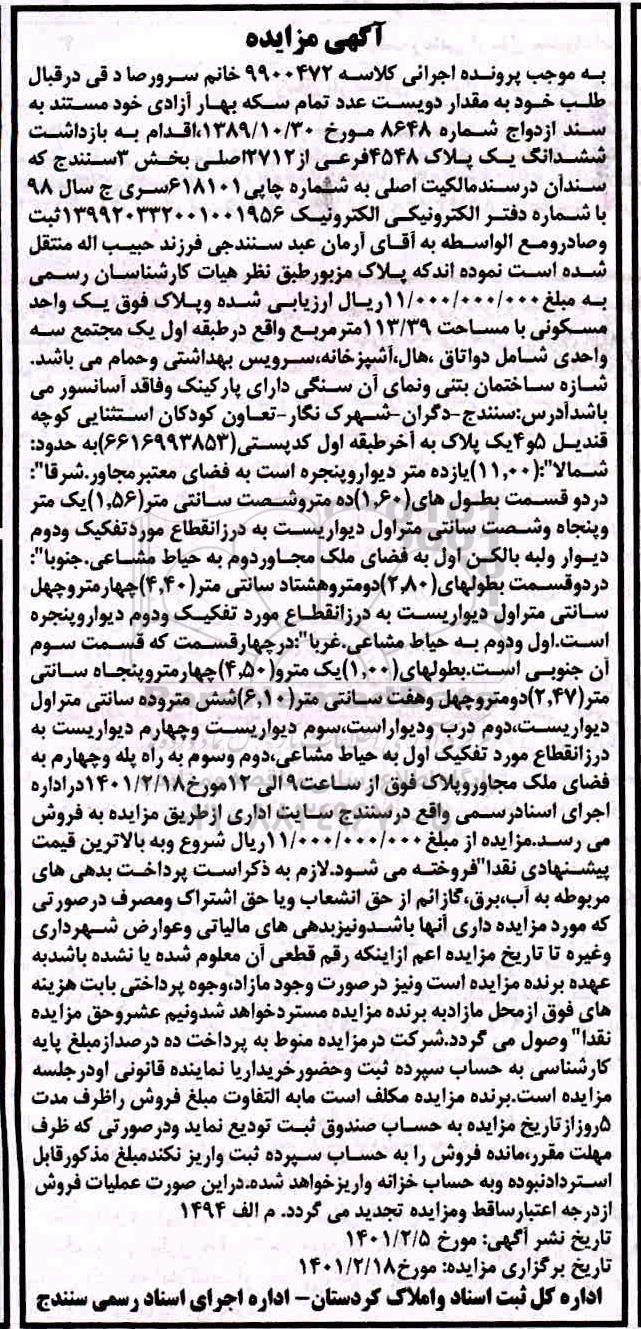 آگهی مزایده
به موجب پرونده اجرائی کلاسه ۹۹۰۰۴۷۲ خانم سرورصا د قی درقبال
طلب خود به مقدار دویست عدد تمام سکه بهار آزادی خود مستند به
سند ازدواج شماره ۸۶۴۸ مورخ ۱۳۸۹/۱۰/۳۰،اقدام به بازداشت
ششدانگ یک پلاک ۴۵۴۸فرعی از۲۷۱۲اصلی بخش ۳سنندج که
سندآن درسندمالکیت اصلی به شماره چاپی۶۱۸۱۰۱سری ج سال ۹۸
با شماره دفتر الکترونیکی الکترونیک ۱۳۹۹۲۰۳۳۲۰۰۱۰۰۱۹۵۶ثبت
وصادرومع الواسطه به آقای آرمان عبد سنندجی فرزند حبیب اله منتقل
شده است نموده اندکه پلاک مزبورطبق نظر هیات کارشناسان رسمی
به مبلغ۱۱/۰۰۰/۰۰۰/۰۰۰ریال ارزیابی شده وپلاک فوق یک واحد
مسکونی با مساحت ۱۱۳/۳۹مترمربع واقع درطبقه اول یک مجتمع سه
واحدی شامل دواتاق ،هال،آشپزخانه،سرویس بهداشتی وحمام می باشد.
شازه ساختمان بتنی ونمای آن سنگی دارای پارکینک وفاقد آسانسور می
باشدآدرس:سنندج-دگران-شهرک نگار-تعاون کودکان استثنایی کوچه
قندیل ۵و۴یک پلاک به آخرطبقه اول کدپستی(۶۶۱۶۹۹۳۸۵۳)به حدود:
شمالا":(۱۱,۰۰)یازده متر دیواروپنجره است به فضای معتبرمجاور.شرقا":
دردو قسمت بطول های(۱,۶۰)ده متروشصت سانتی متر(۱,۵۶)یک متر
وپنجاه وشصت سانتی متراول دیواریست به درزانقطاع موردتفکیک ودوم
دیوار ولبه بالکن اول به فضای ملک مجاوردوم به حیاط مشاعی.جنوبا":
دردوقسمت بطولهای(۲,۸۰)دومتروهشتاد سانتی متر(۴,۴۰)چهارمتروچهل
سانتی متراول دیواریست به درزانقطاع مورد تفکیک ودوم دیواروپنجره
است.اول ودوم به حیاط مشاعی.غربا":درچهارقسمت که قسمت سوم
آن جنوبی است.بطولهای(۱,۰۰)یک مترو(۴,۵۰)چهارمتروپنجاه سانتی
متر(۲,۴۷)دومتروچهل وهفت سانتی متر(۶,۱۰)شش متروده سانتی متراول
دیواریست،دوم درب ودیواراست،سوم دیواریست وچهارم دیواریست به
درزانقطاع مورد تفکیک اول به حیاط مشاعی،دوم وسوم به راه پله وچهارم به
فضای ملک مجاوروپلاک فوق از ساعت۹الی ۱۲مورخ۱۴۰۱/۲/۱۸دراداره
اجرای اسنادرسمی واقع درسنندج سایت اداری ازطریق مزایده به فروش
می رسد.مزایده از مبلغ۱۱/۰۰۰/۰۰۰/۰۰۰ریال شروع وبه بالاترین قیمت
پیشنهادی نقدا"فروخته می شود.لازم به ذکراست پرداخت بدهی های
مربوطه به آب،برق،گازانم از حق انشعاب ویا حق اشتراک ومصرف درصورتی
که مورد مزایده داری آنها باشدونیزبدهی های مالیاتی وعوارض شهرداری
وغیره تا تاریخ مزایده اعم ازاینکه رقم قطعی آن معلوم شده یا نشده باشدبه
عهده برنده مزایده است ونیز درصورت وجود مازاد،وجوه پرداختی بابت هزینه
های فوق ازمحل مازادبه برنده مزایده مستردخواهد شدونیم عشروحق مزایده
نقدا" وصول می گردد.شرکت درمزایده منوط به پرداخت ده درصدازمبلغ پایه
کارشناسی به حساب سپرده ثبت وحضورخریداریا نماینده قانونی اودرجلسه
مزایده است.برنده مزایده مکلف است مابه التفاوت مبلغ فروش راظرف مدت
۵روزازتاریخ مزایده به حساب صندوق ثبت تودیع نماید ودرصورتی که ظرف
مهلت مقرر،مانده فروش را به حساب سپرده ثبت واریز نکندمبلغ مذکورقابل
استردادنبوده وبه حساب خزانه واریزخواهد شده.دراین صورت عملیات فروش
ازدرجه اعتبارساقط ومزایده تجدید می گردد. م الف ۱۴۹۴
تاریخ نشر آگهی: مورخ ۱۴۰۱/۲/۵
تاریخ برگزاری مزایده: مورخ۱۴۰۱/۲/۱۸
اداره کل ثبت اسناد واملاک کردستان- اداره اجرای اسناد رسمی سنندج